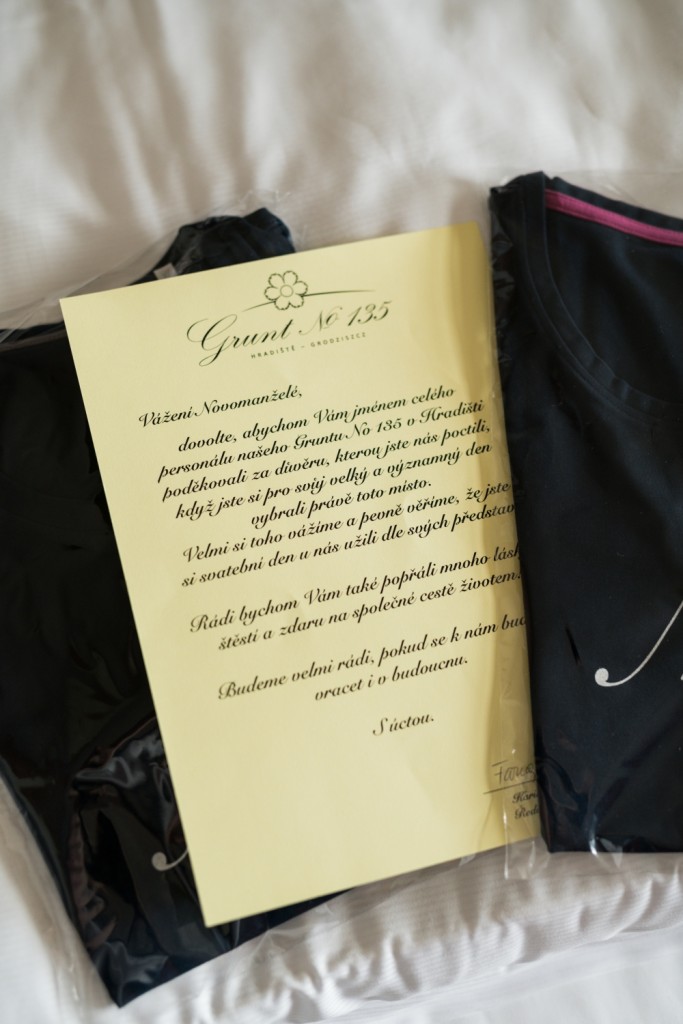 Grunt No 135
HRADIŠTĚ - GRODZISZCZ
Vážení Novomanželé,
dovolte, abychom Vám jménem celého
personálu našeho Gruntu No 135 v Hradišti
poděkovali za důvěru, kterou jste nás poctili,
když jste si pro svůj velký a významný den
vybrali právě toto místo.
Velmi si toho vážíme a pevně věříme, že jste
si svatební den u nás užili dle svých představ
Rádi bychom Vám také popřáli mnoho lásk
štěstí a zdaru na společné cestě životem.
Budeme velmi rádi, pokud se k nám bud
vracet i v budoucnu.
S úctou.